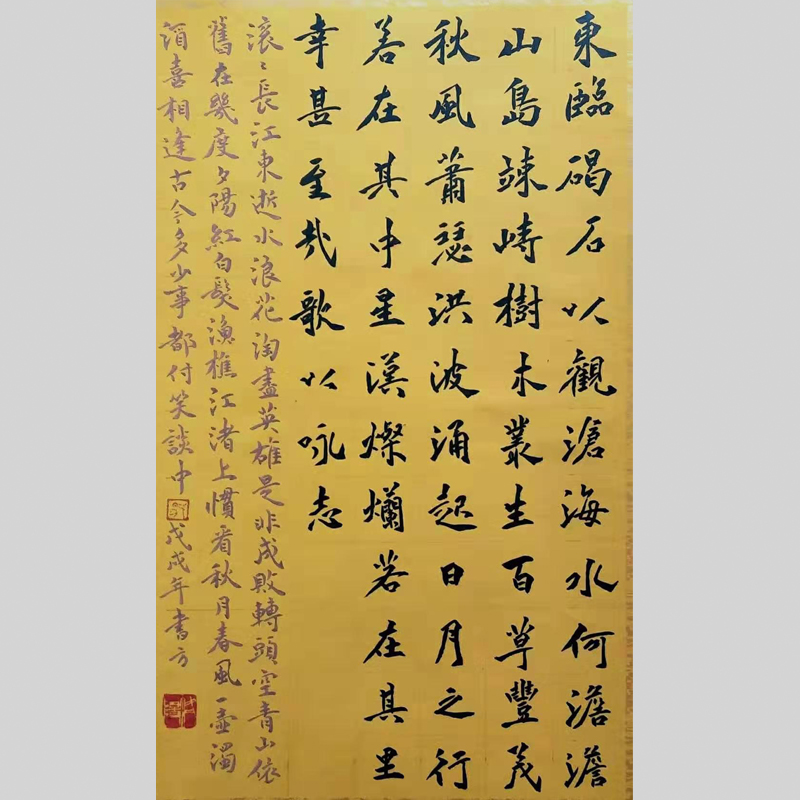 東臨碣石以觀滄海水何澹澹
山島竦峙樹木叢生百草豐茂
秋風蕭瑟洪波涌起日月之行
若在其中星漢燦爛若在其里
幸甚至哉歌以咏志
滚〻長江東逝水浪花淘盡英雄是非成敗轉頭空青山依
舊在幾度夕陽紅白髮漁樵江渚上慣看秋月春風一壺濁
酒喜相逢古今多少事都付笑談中戊戌年書方